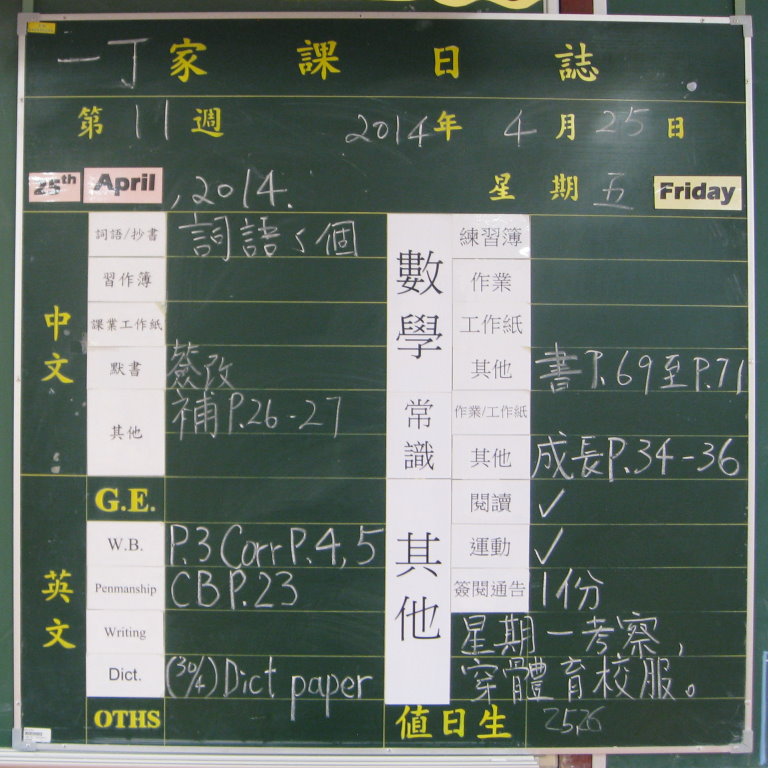 一丁家課日誌
第11週 2014年4月25日
25th April, 2014. 星期五 Friday
中文
詞語/抄書 詞語5個
習作簿
課業工作紙
默書 簽改
其他 補P.26-27
英文
G.E.
W.B. P.3 Corr P.4,5
Penmanship CB P.23
Writing
Dict. (30/4) Dict paper
OTHS
數學
練習簿
作業
工作紙
其他 書P.69至P.71
常識
作業/工作紙
其他 成長P.34-36
其他
閱讀 ✓
運動 ✓
簽閱通告 1份
星期一考察,
穿體育校服。
值日生 25,26